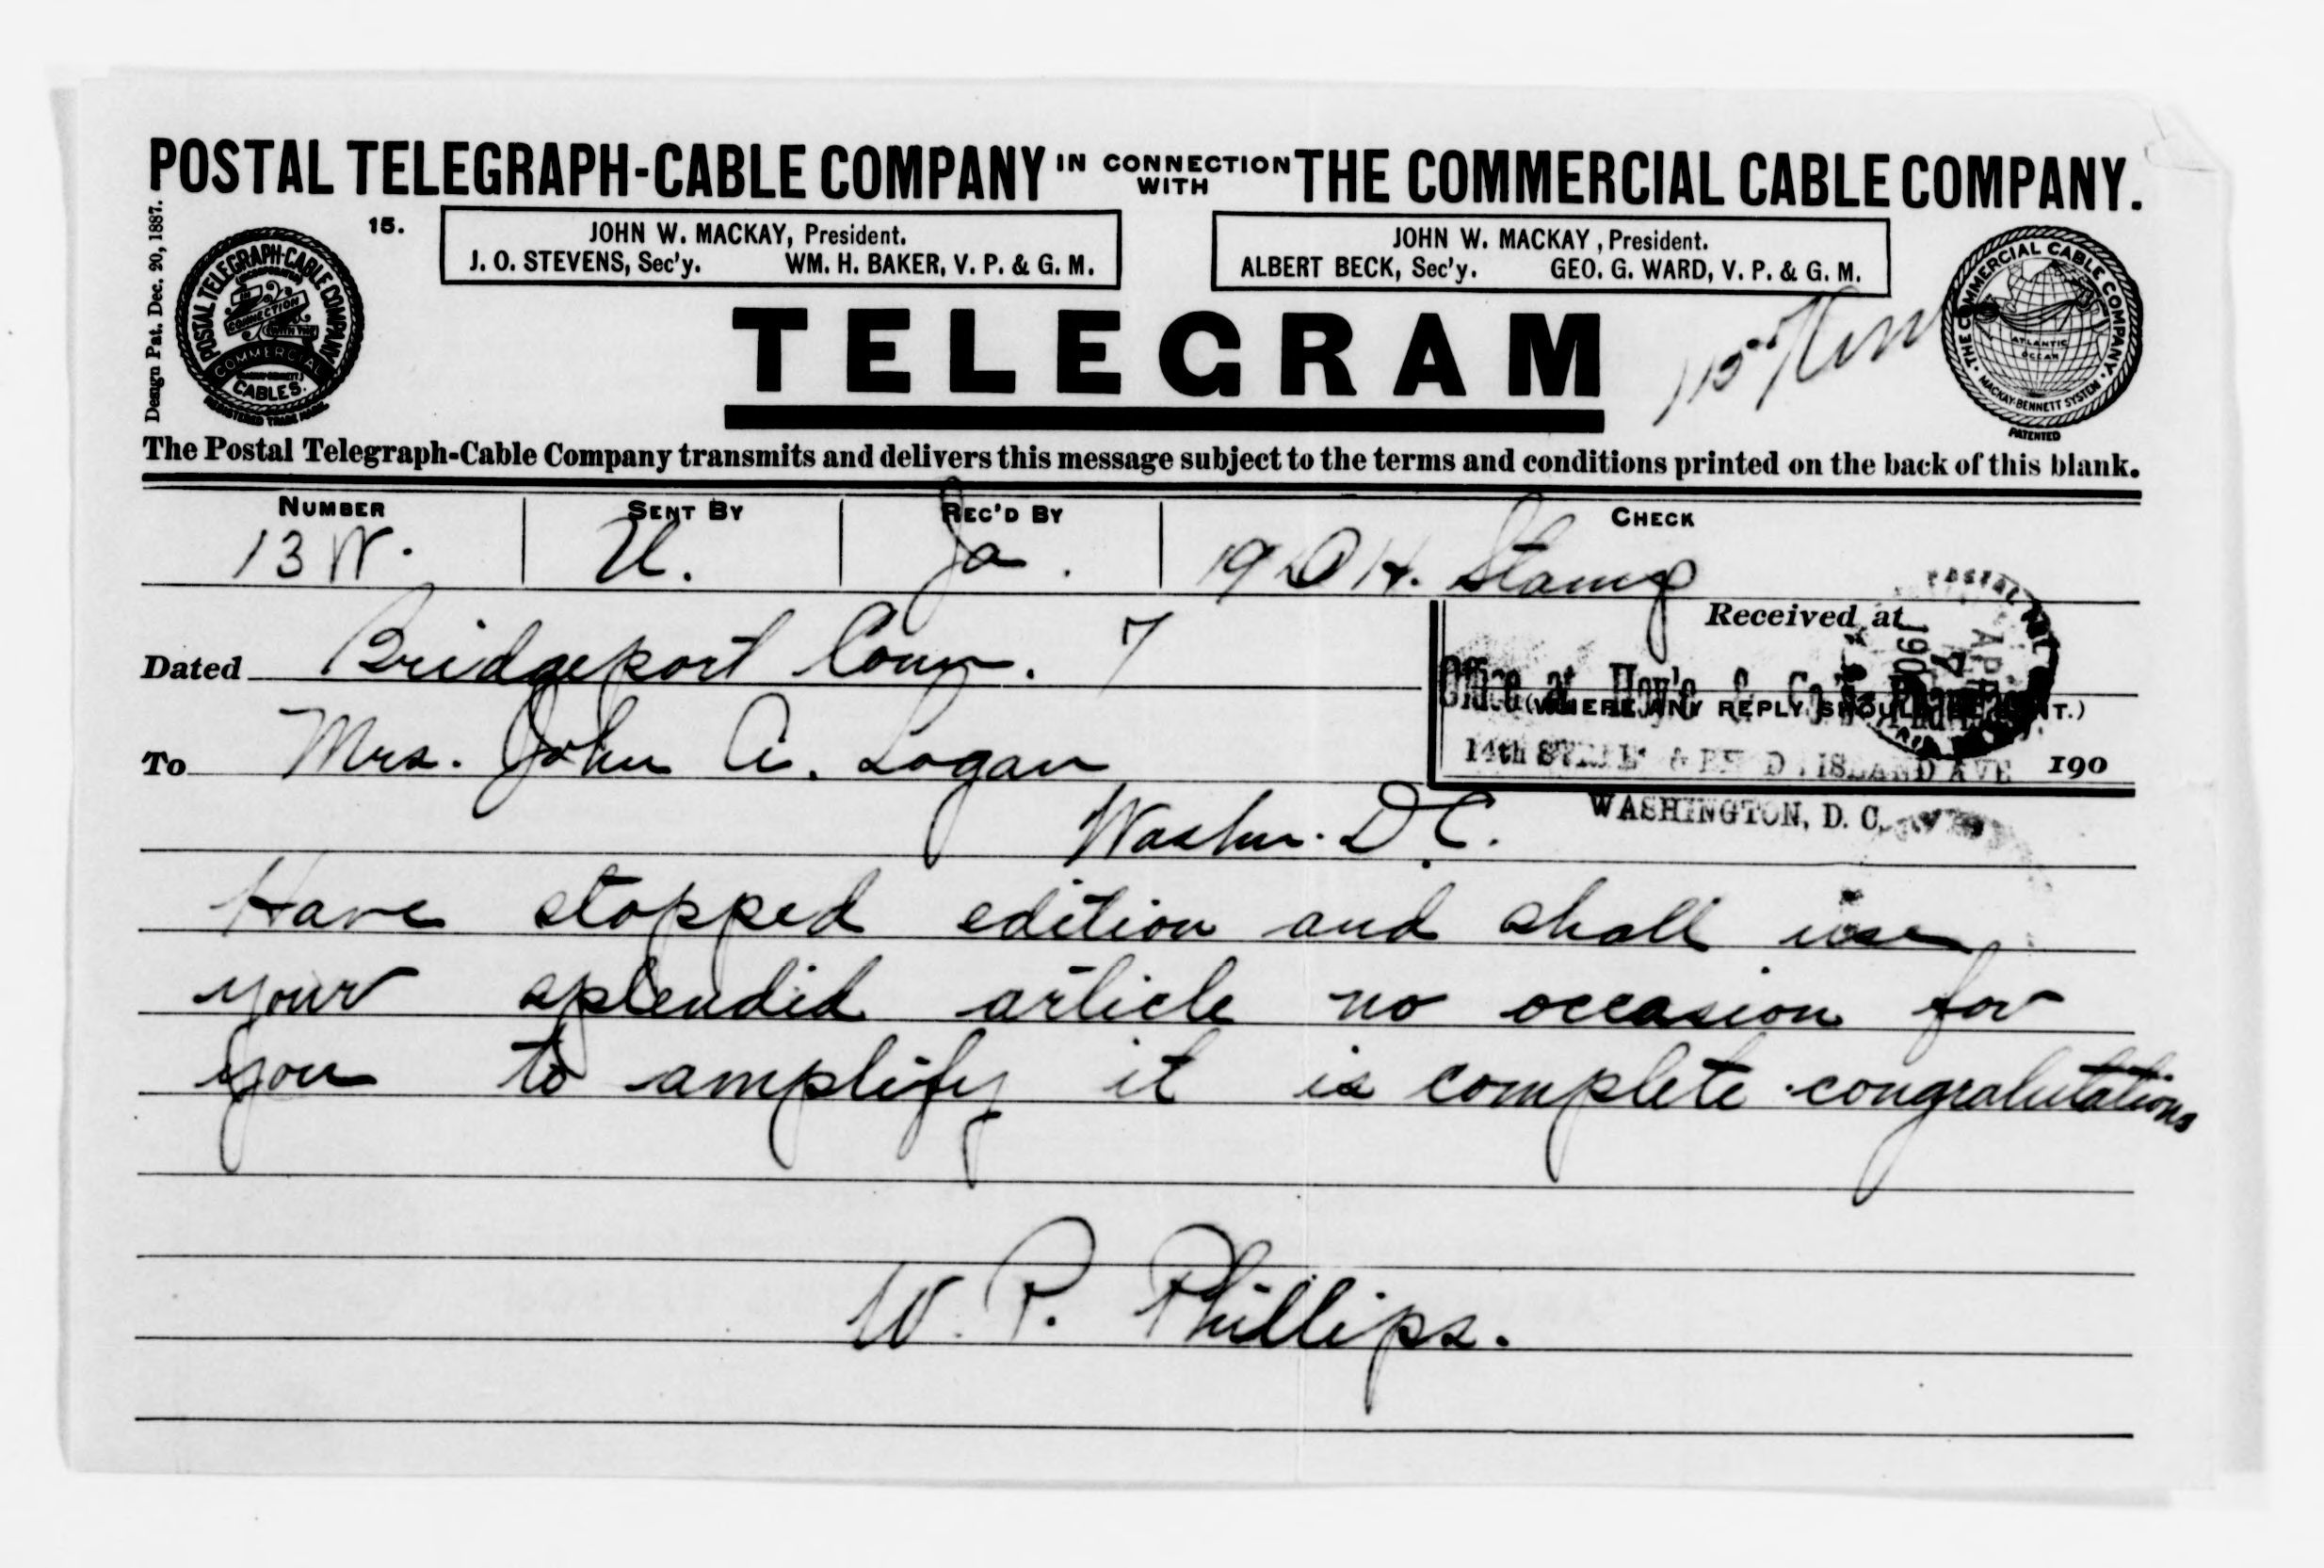 POSTAL TELEGRAPH-CABLE COMPANY IN CONNECTION WITH THE COMMERCIAL CABLE COMPANY.
Design Pat. Dec. 20, 1887.
15.
JOHN W. MACKAY, President.
J. O. STEVENS, Sec'y. WM. H. BAKER, V. P. & G. M.
JOHN W. MACKAY, President.
ALBERT BECK, Sec'y. GEO. G. WARD, V. P. & G. M.
POSTAL TELEGRAPH-CABLE COMPANY
IN CONNECTION WITH THE
COMMERCIAL
CABLES.
REGISTERED TRADE MARK.
THE COMMERCIAL CABLE COMPANY.
ATLANTIC OCEAN
MACKAY-BENNETT SYSTEM
PATENTED
TELEGRAM
The Postal Telegraph-Cable Company transmits and delivers this message subject to the terms and conditions printed on the back of this blank.
NUMBER SENT BY REC'D BY CHECK
13 W. U. Ja. 19 D H. Stamp
Received at
Dated Bridgeport Conn. 7
Office at
(WHERE ANY REPLY SHOULD
To Mrs. John A. Logan
14th ISLAND AVE 190
WASHINGTON, D. C.
Washn. D.C.
Have stopped edition and shall use
your splendid article no occasion for
you to amplify it is complete congratulations
W. P. Phillips.